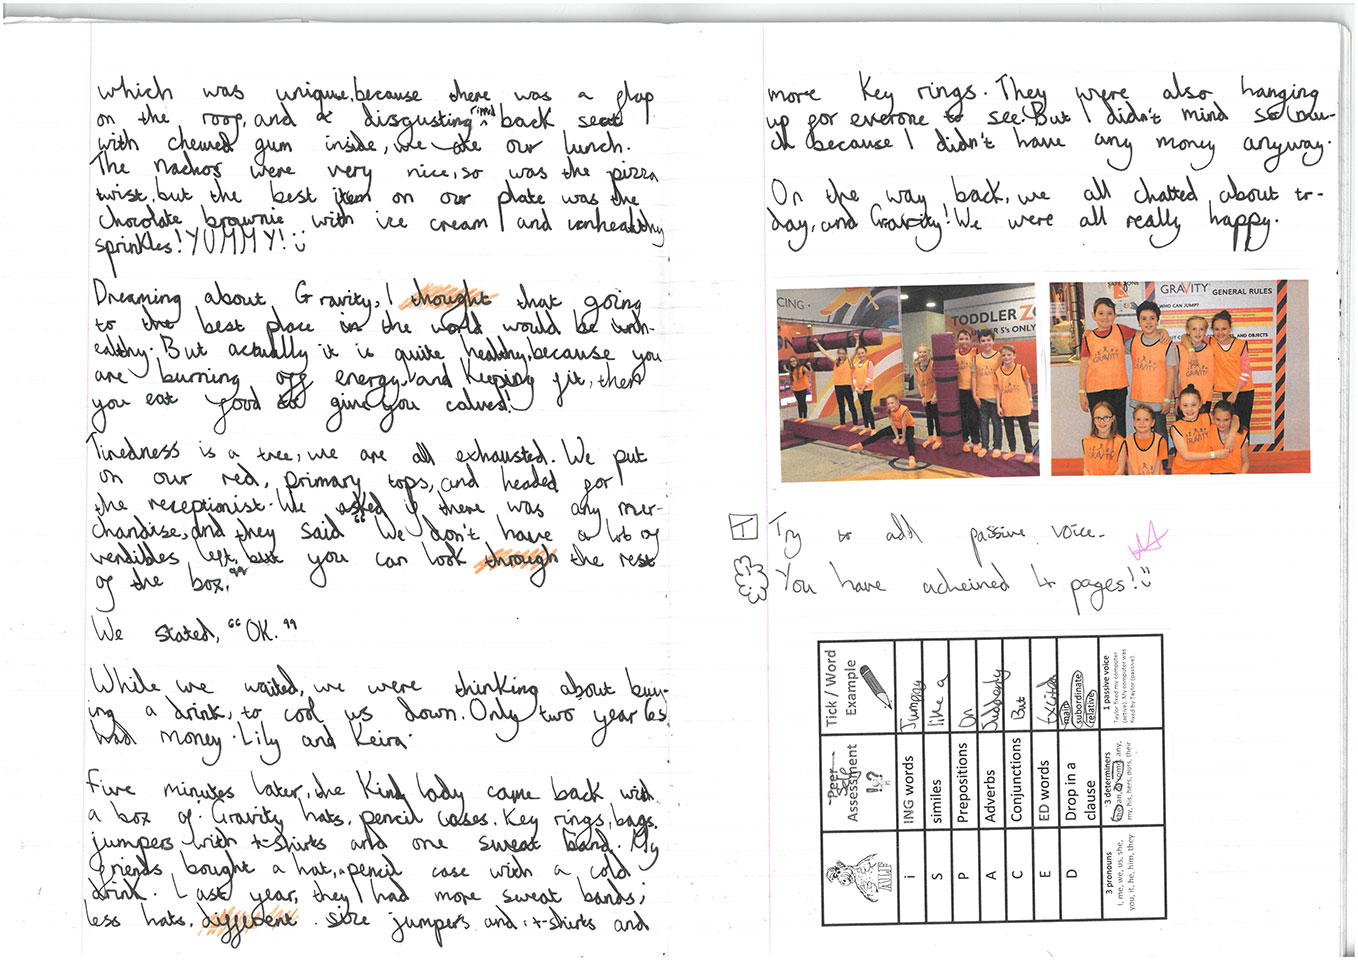 which was uniquse, because there was a flap
on the roof, and a disgusting ripped back seat
with chewed gum inside, we ate our lunch.
The nachos were very nice, so was the pizza
twist, but the best item on our plate was the
chocolate brownie with ice cream and unhealthy
sprinkles! YUMMY!
Dreaming about Gravity, I thought that going
to the best place in the world would be unh-
ealthy. But actually it is quite healthy, because you
are burning off energy and keeping fit, then
you eat food give you calves!
Tiredness is a tree, we are all exhausted. We put
on our red, primary tops, and headed for
the receptionist. We asked if there was any mer-
chandise, and they said "We don't have a lot of
vendibles left, but you can look through the rest
of the box."
We stated, "OK."
While we waited, we were thinking about buy-
ing a drink, to cool us down. Only two year 6s
had money. Lily and Keira.
Five minutes later, the kind lady came back with
a box of Gravity hats, pencil cases, key rings, bags,
jumpers with t-shirts and one sweat band. My
friends bought a hat, pencil case with a cold
drink. Last year, they had more sweat bands;
less hats, different size jumpers and t-shirts and
more key rings. They were also hanging
up for everone to see. But I didn't mind so mu-
ch because I didn't have any money anyway.
On the way back, we all chatted about to-
day, and Gravity! We were all really happy.
TODDLER ZO
UNDER 5's ONLY
GRAVITY GENERAL RULES
WHO CAN JUMP?
T Try to add passive voice.
You have acheived 4 pages!
Tick / Word Example
Peer Self Assessment
AULF
I ING words Jumping
S similes like a
P Prepositions On
A Adverbs Suddenly
C Conjunctions But
E ED words Excited
D Drop in a clause main subordinate relative
3 pronouns
I, me, we, us, she,
you, it, he, him, they
3 determiners
the, an, a, some, any,
my, his, hers, ours, their
1 passive voice
Taylor fixed my computer
(active). My computer was
fixed by Taylor (passive).